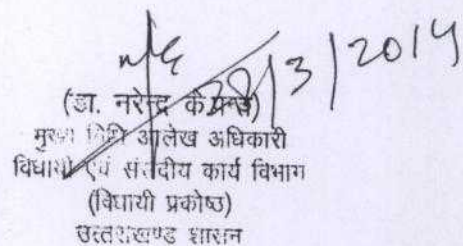 28/3/2014
(डा. नरेन्द्र के पन्त)
मुख्य विधि आलेख अधिकारी
विधायी एवं संसदीय कार्य विभाग
(विधायी प्रकोष्ठ)
उत्तराखण्ड शासन